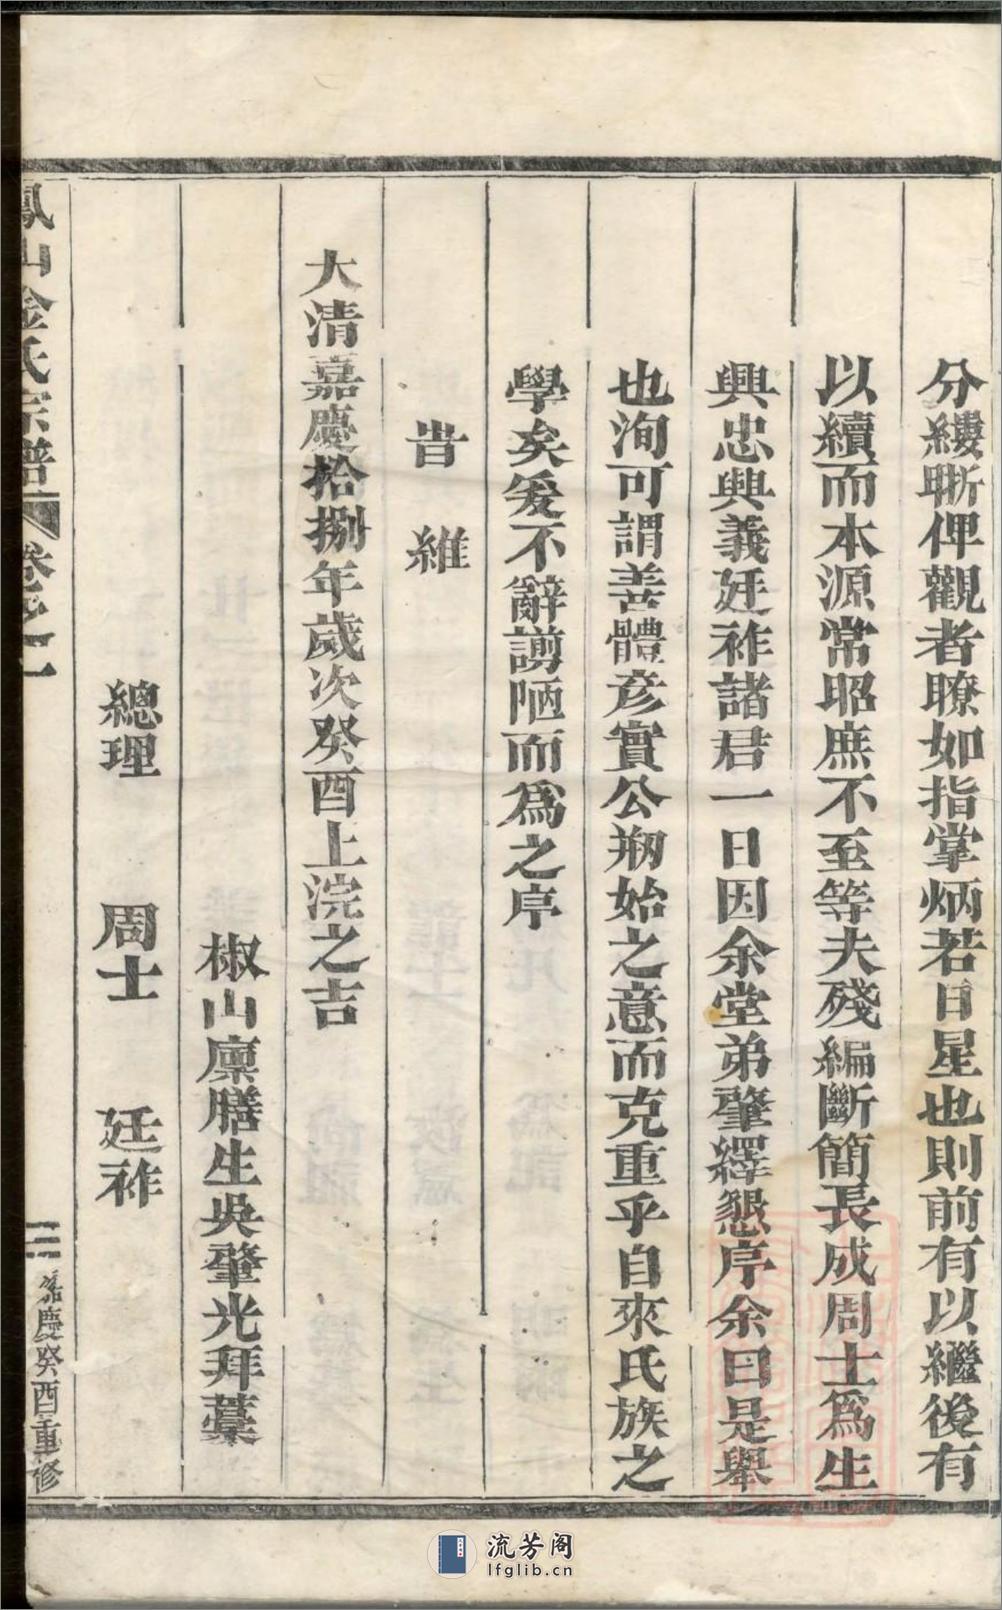 分縷晰俾觀者瞭如指掌炳若日星也則前有以繼後有
以續而本源常昭庶不至等夫殘編斷簡長成周士爲生
興忠興義廷祚諸君一日因余堂弟肇繹懇序余曰是舉
也洵可謂善體彥實公剏始之意而克重乎自來氏族之
學矣爰不辭謭陋而爲之序
旹維
大清嘉慶拾捌年歲次癸酉上浣之吉
椒山廩膳生吳肇光拜藁
總理 周士 廷祚
鳳山金氏宗譜 卷之一 三 嘉慶癸酉重修
流芳阁
lfglib.cn